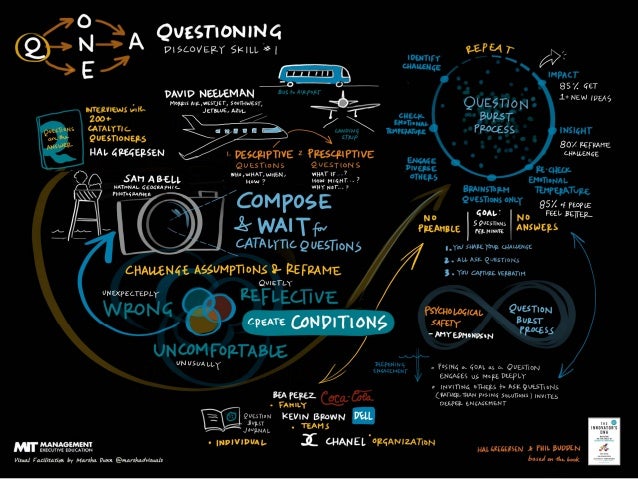 Q
O
N
E
A
QUESTIONING
DISCOVERY SKILL #1
INTERVIEWS with
200+
CATALYTIC
QUESTIONERS
HAL GREGERSEN
QUESTIONS
are the
ANSWER
DAVID NEELEMAN
MORRIS AIR, WESTJET, SOUTHWEST,
JETBLUE, AZUL
BUS to AIRPORT
LANDING
STRIP
1. DESCRIPTIVE
QUESTIONS
WHO, WHAT, WHEN,
HOW?
2. PRESCRIPTIVE
QUESTIONS
WHAT IF...?
HOW MIGHT...?
WHY NOT...?
SAM ABELL
NATIONAL GEOGRAPHIC
PHOTOGRAPHER
COMPOSE
& WAIT for
CATALYTIC QUESTIONS
CHALLENGE ASSUMPTIONS & REFRAME
UNEXPECTEDLY
WRONG
QUIETLY
REFLECTIVE
UNCOMFORTABLE
UNUSUALLY
CREATE CONDITIONS
REPEAT
IDENTIFY
CHALLENGE
CHECK
EMOTIONAL
TEMPERATURE
ENGAGE
DIVERSE
OTHERS
BRAINSTORM
QUESTIONS ONLY
RE-CHECK
EMOTIONAL
TEMPERATURE
85% of PEOPLE
FEEL BETTER
INSIGHT
80% REFRAME
CHALLENGE
IMPACT
85% GET
1+ NEW IDEAS
QUESTION
BURST
PROCESS
NO
PREAMBLE
GOAL:
5 QUESTIONS
PER MINUTE
NO
ANSWERS
1. YOU SHARE YOUR CHALLENGE
2. ALL ASK QUESTIONS
3. YOU CAPTURE VERBATIM
PSYCHOLOGICAL
SAFETY
- AMY EDMONDSON
QUESTION
BURST
PROCESS
DEEPENING
ENGAGEMENT
• POSING a GOAL as a QUESTION
ENGAGES US MORE DEEPLY
• INVITING OTHERS to ASK QUESTIONS
(RATHER THAN POSING SOLUTIONS) INVITES
DEEPER ENGAGEMENT
BEA PEREZ Coca-Cola
• FAMILY
KEVIN BROWN DELL
• TEAMS
CHANEL • ORGANIZATION
QUESTION
BURST
JOURNAL
• INDIVIDUAL
MIT MANAGEMENT
EXECUTIVE EDUCATION
Visual Facilitation by Marsha Dunn @marshadvisuals
HAL GREGERSEN & PHIL BUDDEN
based on the book
THE
INNOVATOR'S
DNA